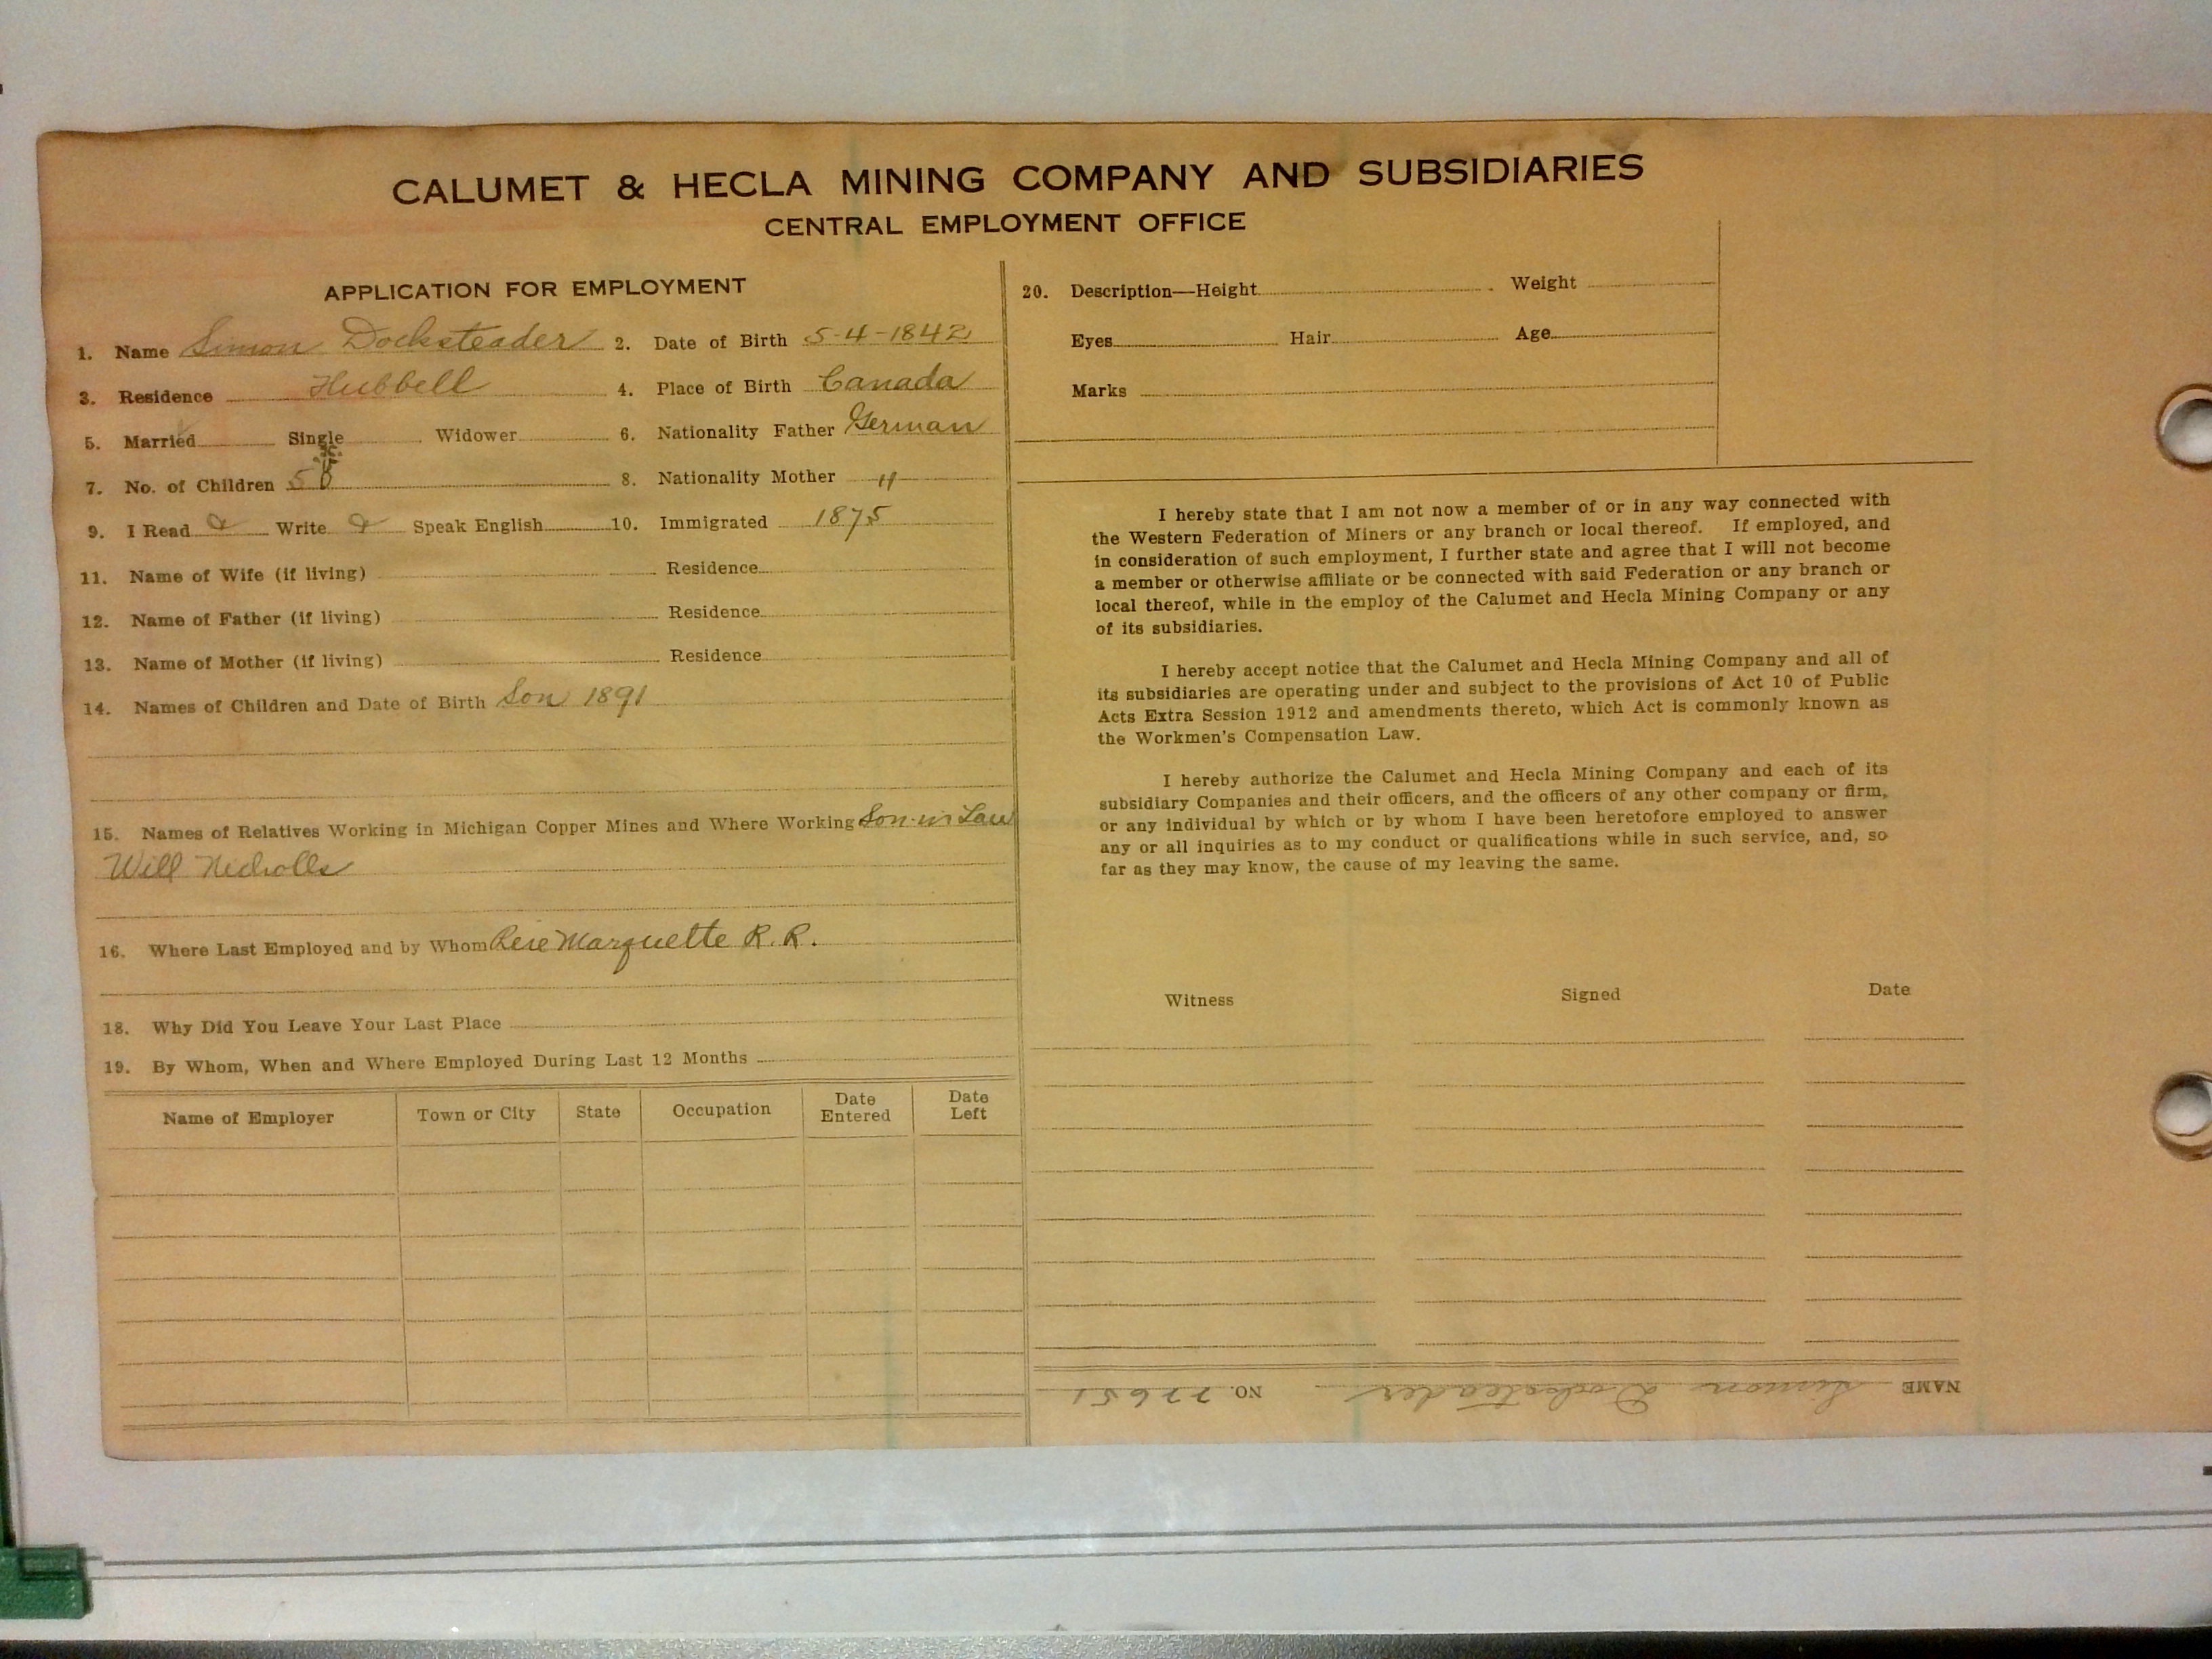 CALUMET & HECLA MINING COMPANY AND SUBSIDIARIES
CENTRAL EMPLOYMENT OFFICE
APPLICATION FOR EMPLOYMENT
1. Name Simon Docksteader 2. Date of Birth 5-4-1842
3. Residence Hubbell 4. Place of Birth Canada
5. Married Single Widower 6. Nationality Father German
7. No. of Children 5 8. Nationality Mother "
9. I Read Write Speak English 10. Immigrated 1875
11. Name of Wife (if living) Residence
12. Name of Father (if living) Residence
13. Name of Mother (if living) Residence
14. Names of Children and Date of Birth Son 1891
15. Names of Relatives Working in Michigan Copper Mines and Where Working Son-in Law
Will Nicholls
16. Where Last Employed and by Whom Pere Marquette R.R.
18. Why Did You Leave Your Last Place
19. By Whom, When and Where Employed During Last 12 Months
Name of Employer Town or City State Occupation Date Entered Date Left
20. Description—Height Weight
Eyes Hair Age
Marks
I hereby state that I am not now a member of or in any way connected with
the Western Federation of Miners or any branch or local thereof. If employed, and
in consideration of such employment, I further state and agree that I will not become
a member or otherwise affiliate or be connected with said Federation or any branch or
local thereof, while in the employ of the Calumet and Hecla Mining Company or any
of its subsidiaries.
I hereby accept notice that the Calumet and Hecla Mining Company and all of
its subsidiaries are operating under and subject to the provisions of Act 10 of Public
Acts Extra Session 1912 and amendments thereto, which Act is commonly known as
the Workmen's Compensation Law.
I hereby authorize the Calumet and Hecla Mining Company and each of its
subsidiary Companies and their officers, and the officers of any other company or firm,
or any individual by which or by whom I have been heretofore employed to answer
any or all inquiries as to my conduct or qualifications while in such service, and, so
far as they may know, the cause of my leaving the same.
Witness Signed Date
NAME Simon Docksteader NO. 77651